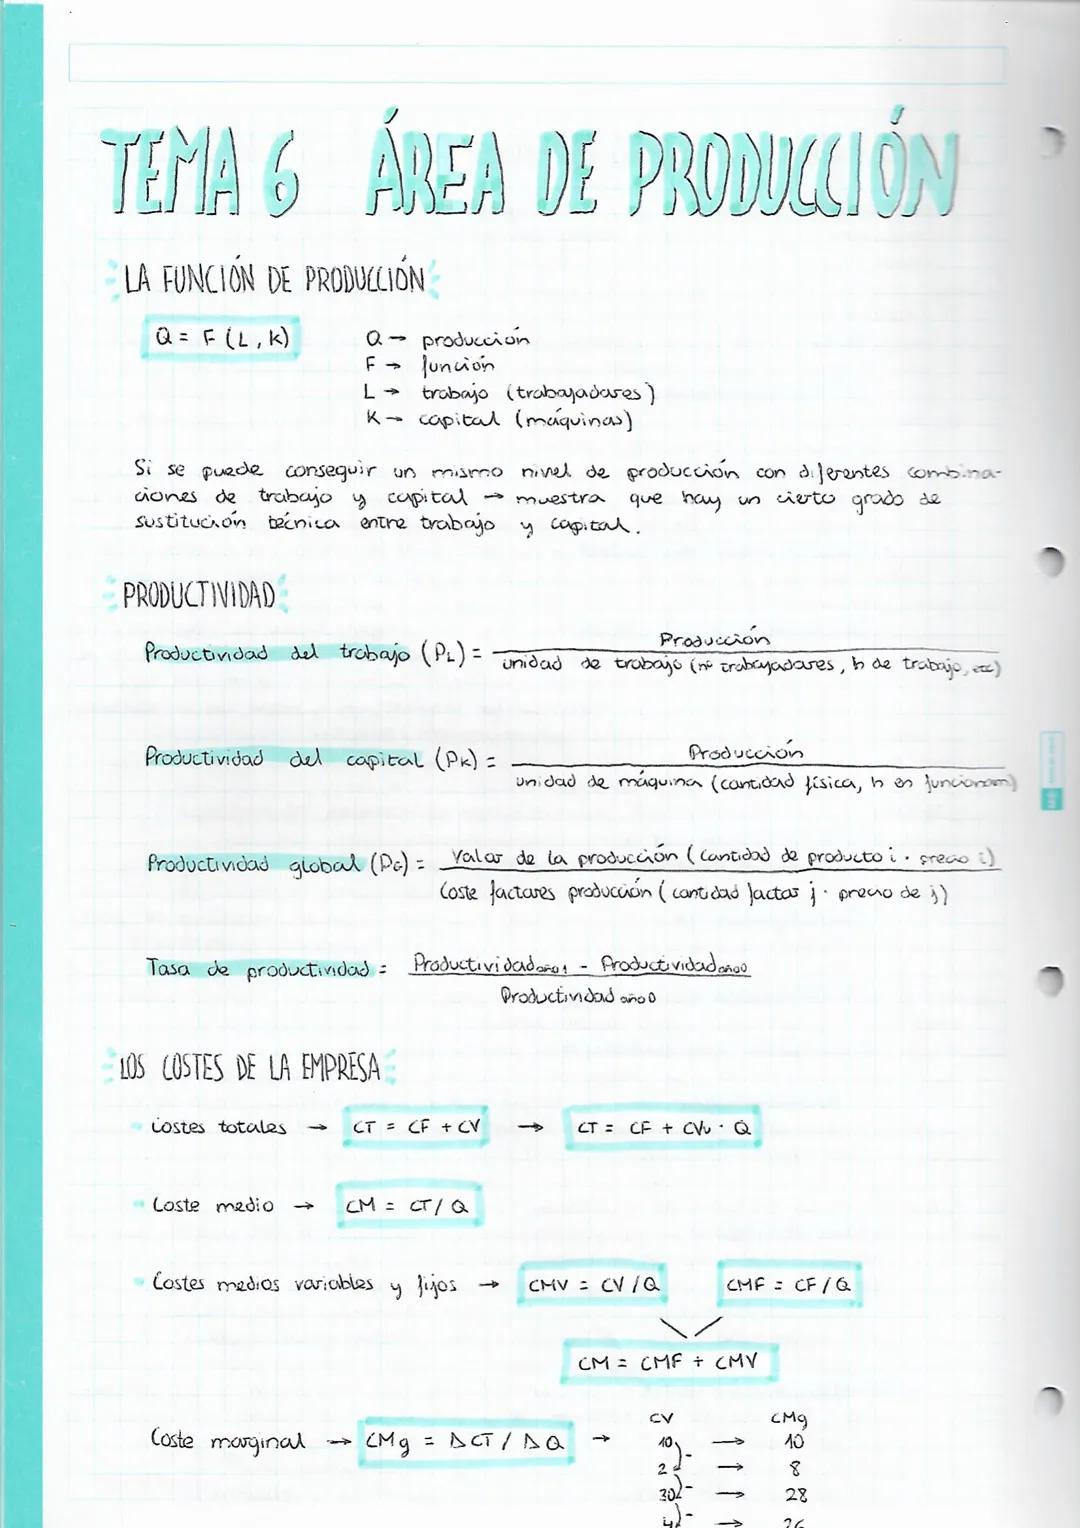 TEMA 6 ÁREA DE PRODUCCIÓN
LA FUNCIÓN DE PRODUCCIÓN
Q = F (L, K)
Q → producción
F → función
L → trabajo (trabajadores)
K → capital (máquinas)
Si se puede conseguir un mismo nivel de producción con diferentes combina-
ciones de trabajo y capital → muestra que hay un cierto grado de
sustitución técnica entre trabajo y capital.
PRODUCTIVIDAD
Productividad del trabajo (PL) = Producción
unidad de trabajo (nº trabajadores, h de trabajo, etc)
Productividad del capital (PK) = Producción
unidad de máquina (cantidad física, h en funcionam)
Productividad global (PG) = Valor de la producción (cantidad de producto i · precio i)
Coste factores producción (cantidad factor j · precio de j)
Tasa de productividad = Productividad año 1 - Productividad año 0
Productividad año 0
LOS COSTES DE LA EMPRESA
Costes totales → CT = CF + CV → CT = CF + CVu · Q
Coste medio → CM = CT / Q
Costes medios variables y fijos → CMV = CV / Q CMF = CF / Q
CM = CMF + CMV
CV CMg
Coste marginal → CMg = ΔCT / ΔQ → 10 → 10
2 → 8
30 → 28
4 → 26